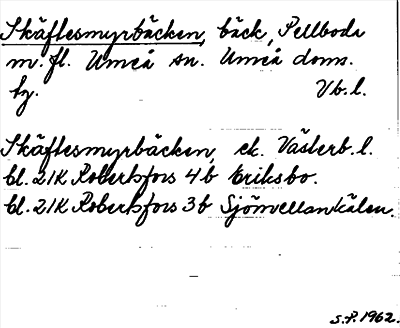 Skäftesmyrbäcken, bäck, Pellboda
m. fl. Umeå sn. Umeå doms.
hg. Vb. l.
Skäftesmyrbäcken, ek. Västerb. l.
bl. 21K Robertsfors 4b Eriksbo.
bl. 21K Robertsfors 3b Sjömellankälen.
S.P. 1962.